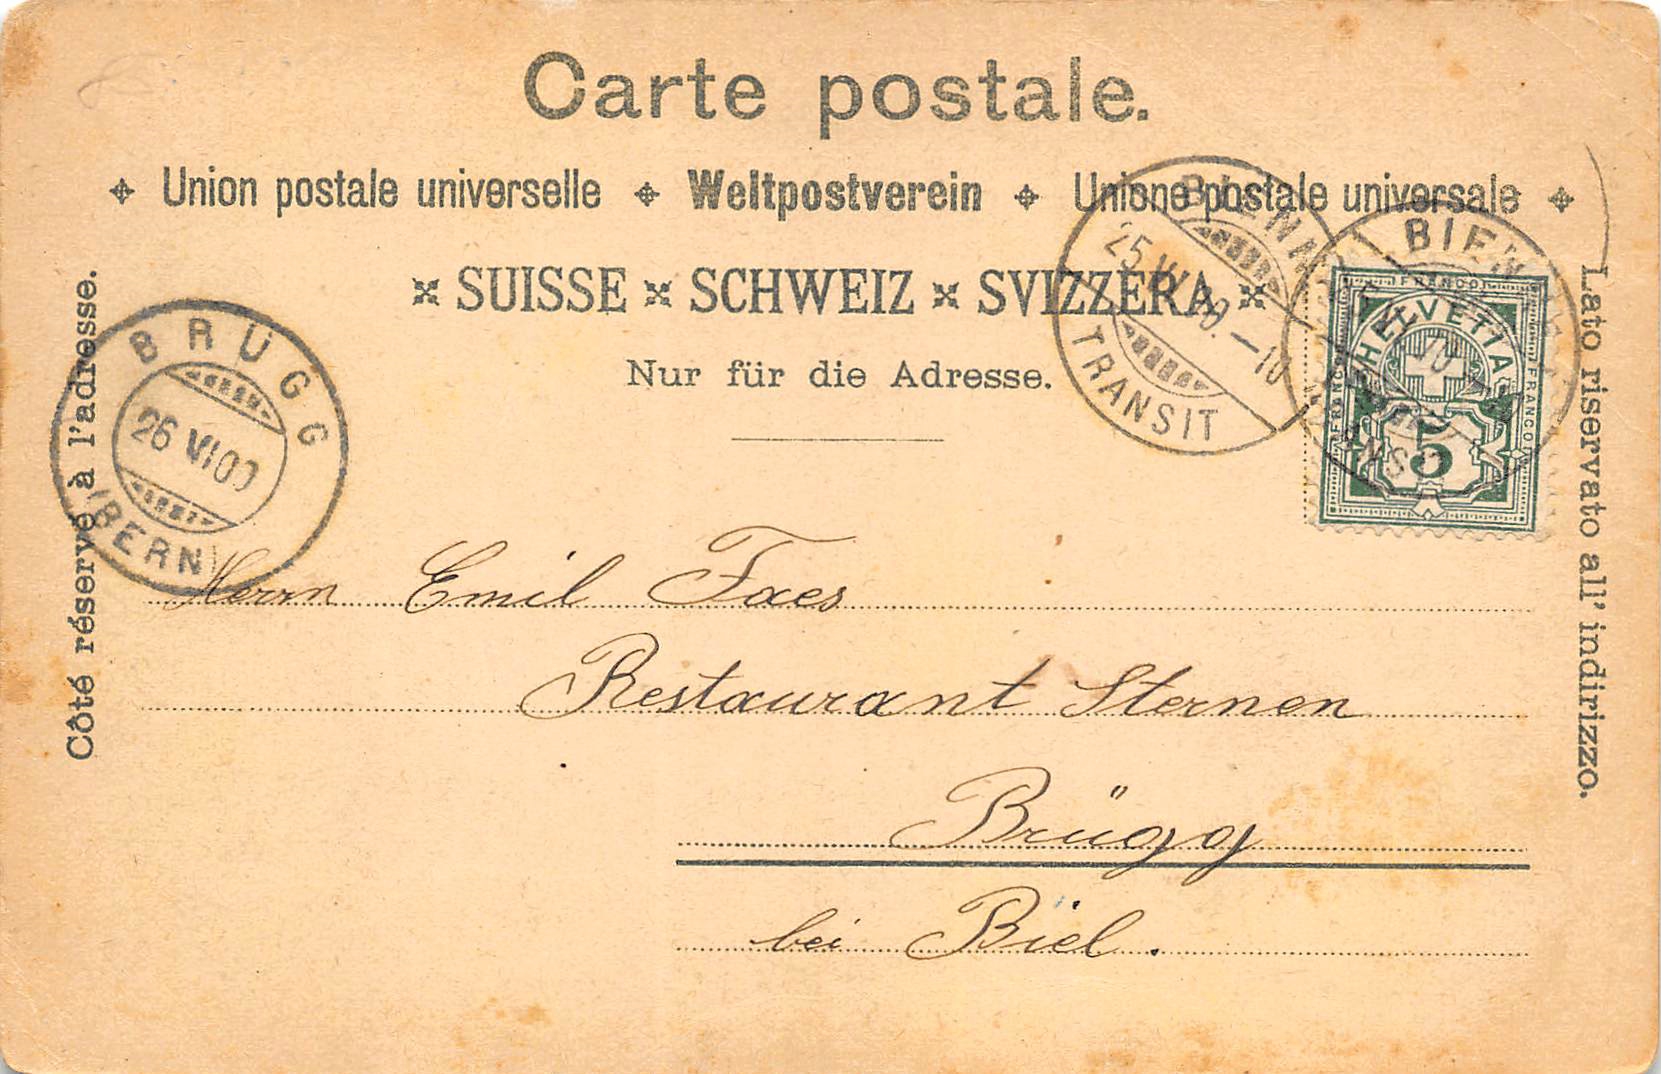 Carte postale.
Union postale universelle Weltpostverein Unione postale universale
SUISSE SCHWEIZ SVIZZERA
Nur für die Adresse.
Côté réservé à l'adresse.
Lato riservato all'indirizzo.
BRÜGG
26 VI 00
(BERN)
25. VI. 00. – 10
TRANSIT
FRANCO
HELVETIA
FRANCO
FRANCO
5
Herrn Emil Faes
Restaurant Sternen
Brügg
bei Biel.